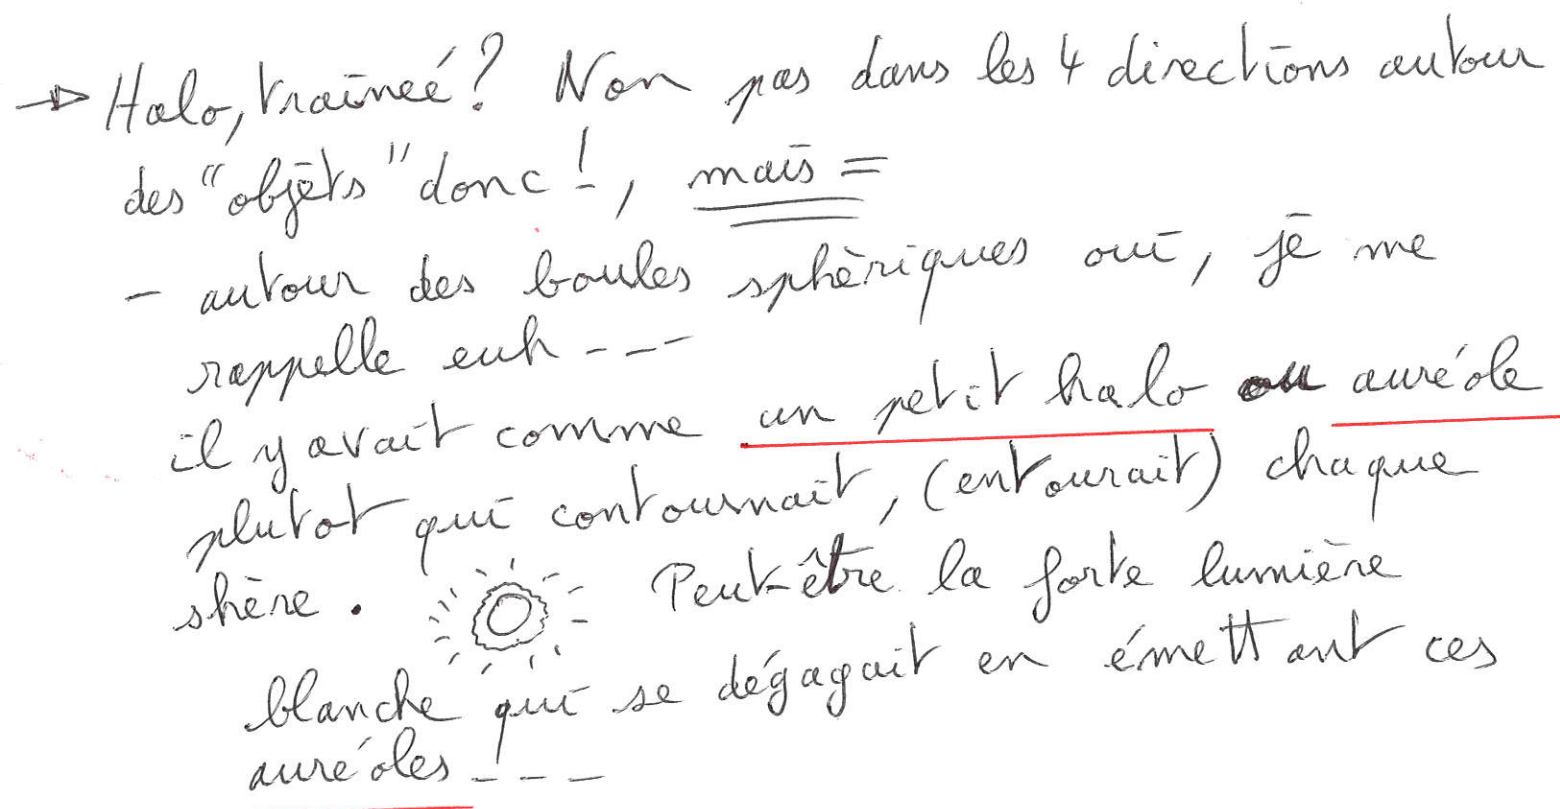 → Halo, traînée? Non pas dans les 4 directions autour
des "objets" donc!, mais =
- autour des boules sphèriques oui, je me
rappelle euh ---
il y avait comme un petit halo ou auréole
plutot qui contournait, (entourait) chaque
shère. Peut-être la forte lumière
blanche qui se dégagait en émettant ces
auréoles ---